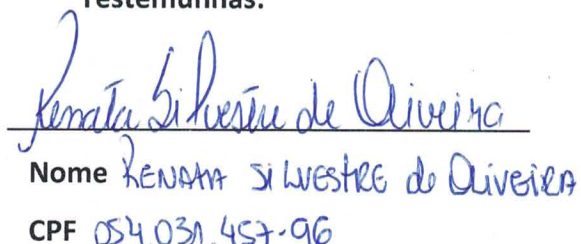 Testemunhas:
Renata Silvestre de Oliveira
Nome RENATA SILVESTRE de OLIVEIRA
CPF 054.031.457-96